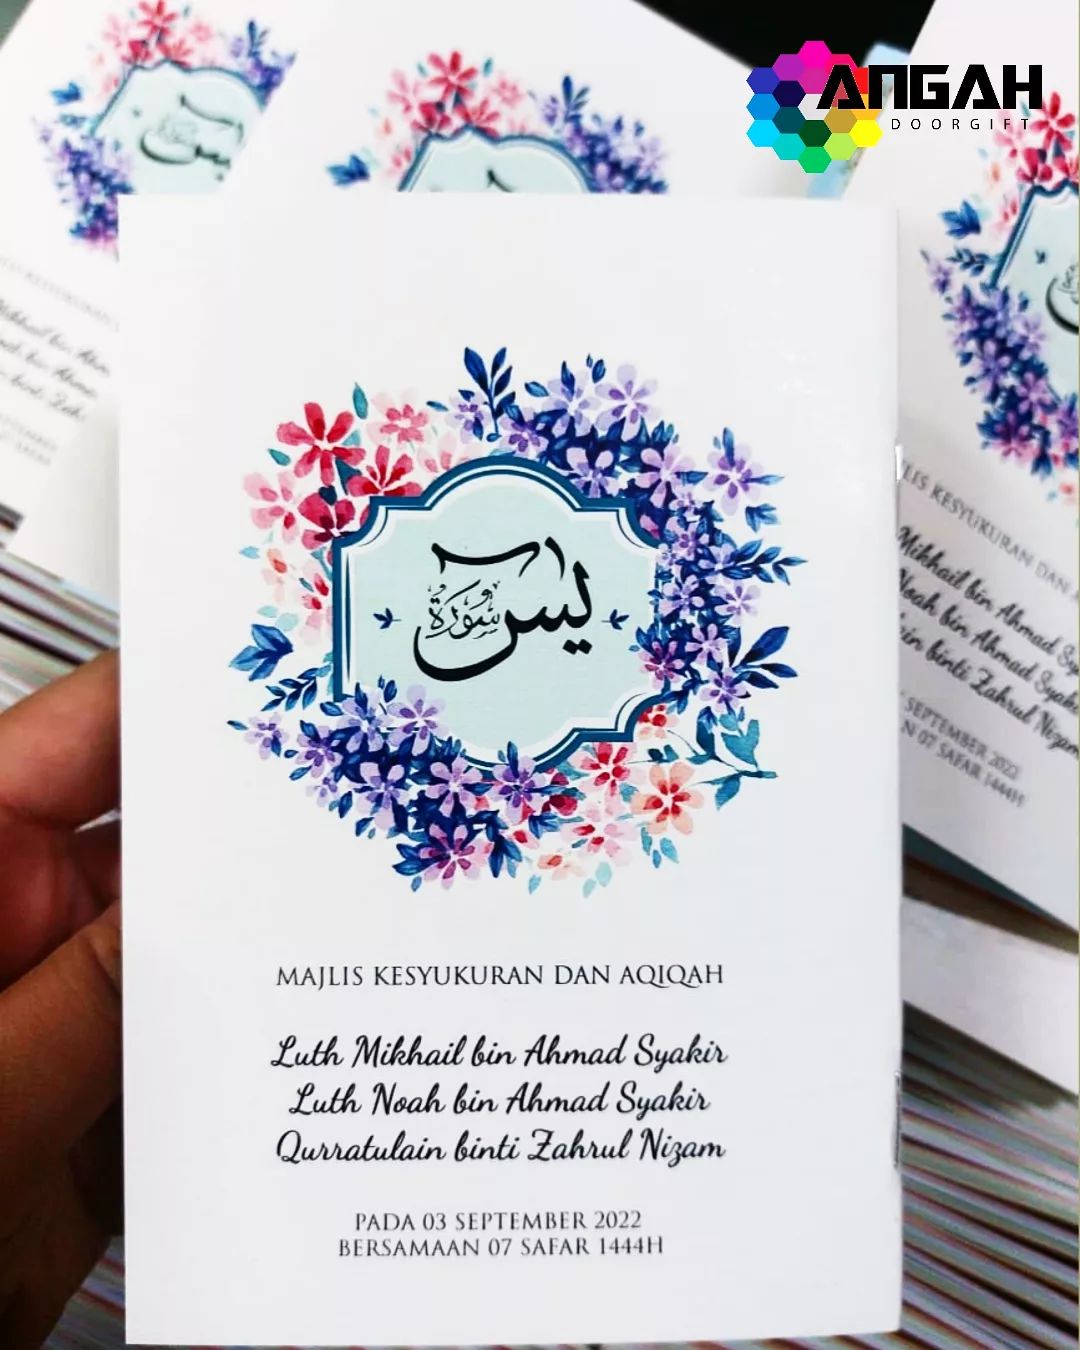 ANGAH
DOORGIFT
سورة يس
MAJLIS KESYUKURAN DAN AQIQAH
Luth Mikhail bin Ahmad Syakir
Luth Noah bin Ahmad Syakir
Qurratulain binti Zahrul Nizam
PADA 03 SEPTEMBER 2022
BERSAMAAN 07 SAFAR 1444H
KESYUKURAN DAN
Mikhail bin Ahmad
Noah bin Ahmad Syakir
binti Zahrul Nizam
SEPTEMBER 2022
07 SAFAR 1444H